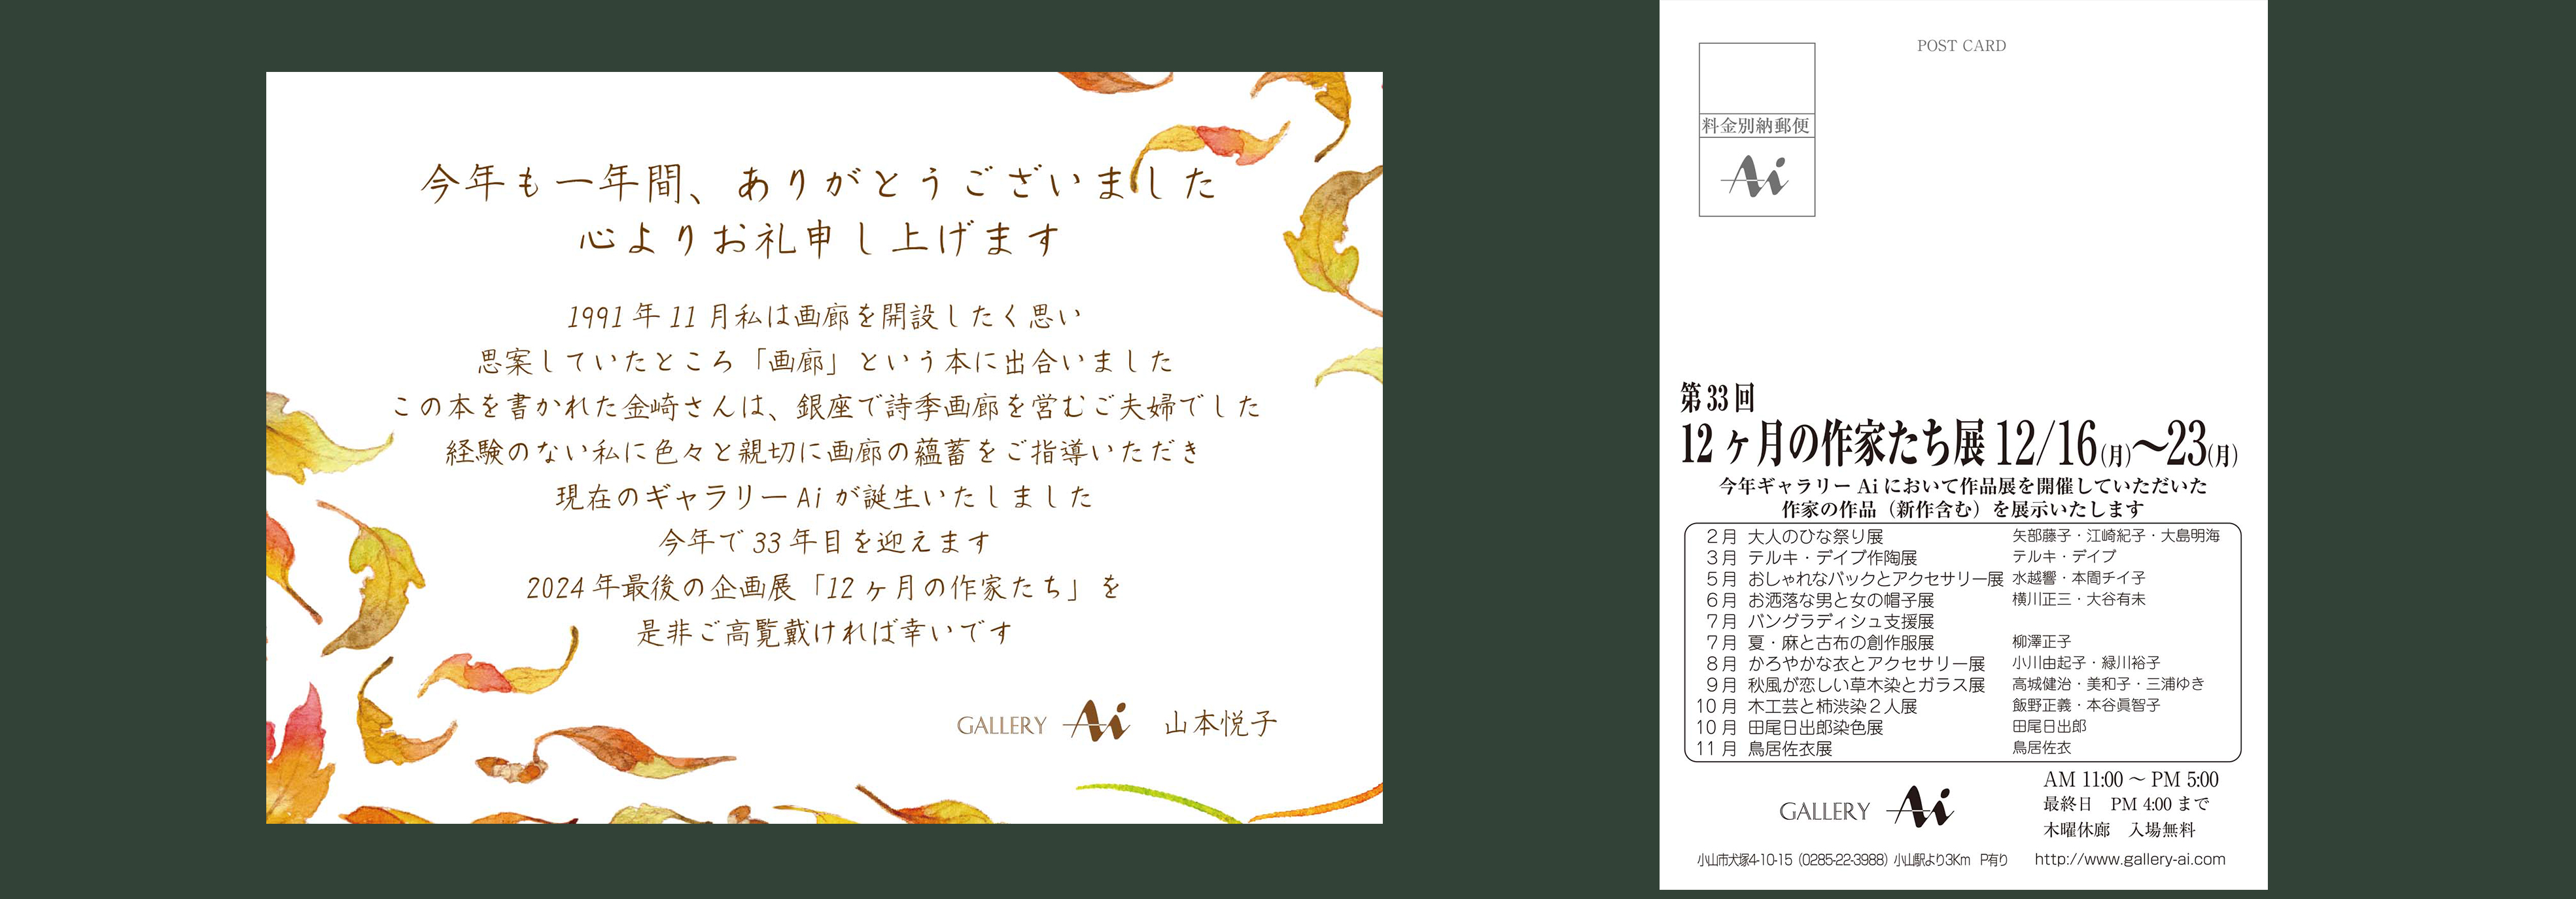 今年も一年間、ありがとうございました
心よりお礼申し上げます
1991年11月私は画廊を開設したく思い
思案していたところ「画廊」という本に出合いました
この本を書かれた金崎さんは、銀座で詩季画廊を営むご夫婦でした
経験のない私に色々と親切に画廊の蘊蓄をご指導いただき
現在のギャラリーAiが誕生いたしました
今年で33年目を迎えます
2024年最後の企画展「12ヶ月の作家たち」を
是非ご高覧戴ければ幸いです
GALLERY Ai 山本悦子
POST CARD
料金別納郵便
Ai
第33回
12ヶ月の作家たち展 12/16(月)〜23(月)
今年ギャラリーAiにおいて作品展を開催していただいた
作家の作品（新作含む）を展示いたします
2月 大人のひな祭り展 矢部藤子・江崎紀子・大島明海
3月 テルキ・デイブ作陶展 テルキ・デイブ
5月 おしゃれなバックとアクセサリー展 水越響・本間チイ子
6月 お洒落な男と女の帽子展 横川正三・大谷有未
7月 バングラディシュ支援展
7月 夏・麻と古布の創作服展 柳澤正子
8月 かろやかな衣とアクセサリー展 小川由起子・緑川裕子
9月 秋風が恋しい草木染とガラス展 高城健治・美和子・三浦ゆき
10月 木工芸と柿渋染2人展 飯野正義・本谷眞智子
10月 田尾日出郎染色展 田尾日出郎
11月 鳥居佐衣展 鳥居佐衣
AM 11:00 〜 PM 5:00
最終日 PM 4:00 まで
木曜休廊 入場無料
GALLERY Ai
小山市犬塚4-10-15（0285-22-3988）小山駅より3Km P有り http://www.gallery-ai.com